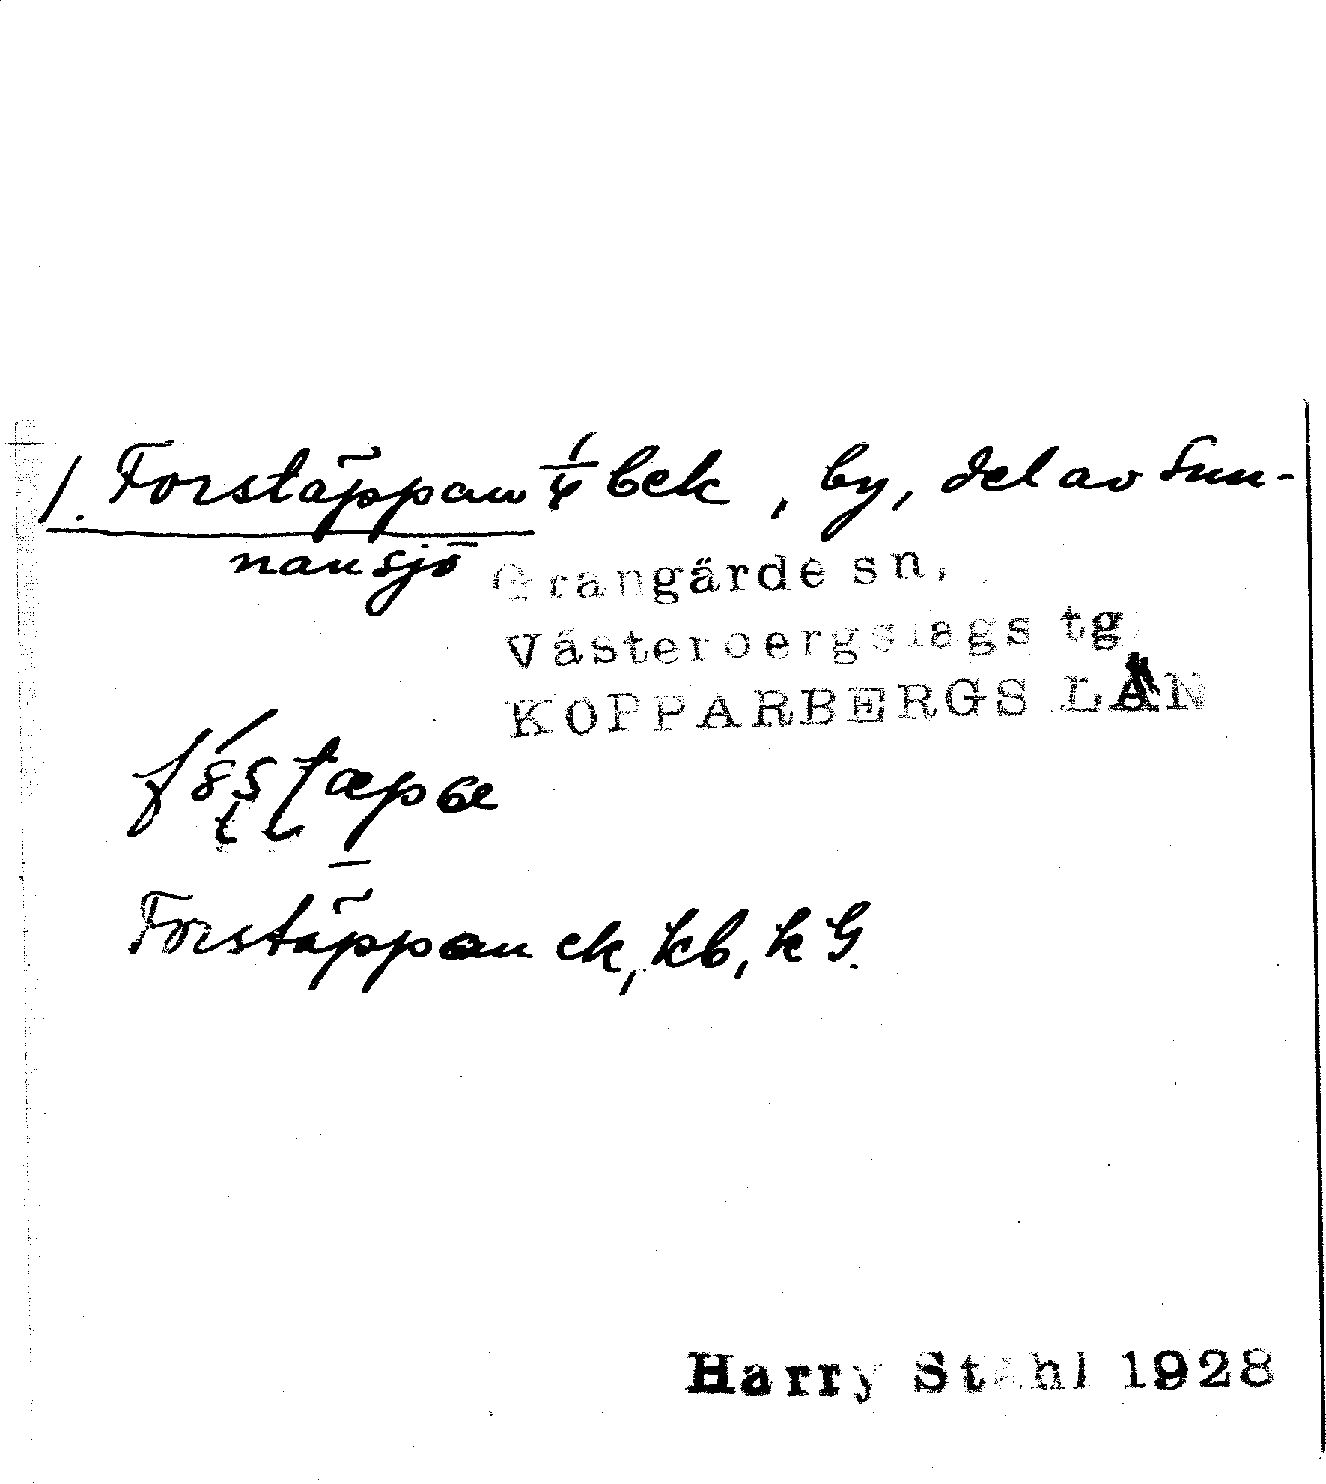 1. Forstäppan ¼ bek, by, del av Sun-
nansjö
Grangärde sn,
Västerbergslags tg
KOPPARBERGS LÄN
Forstäppan ek, kb, k G.
Harry Ståhl 1928